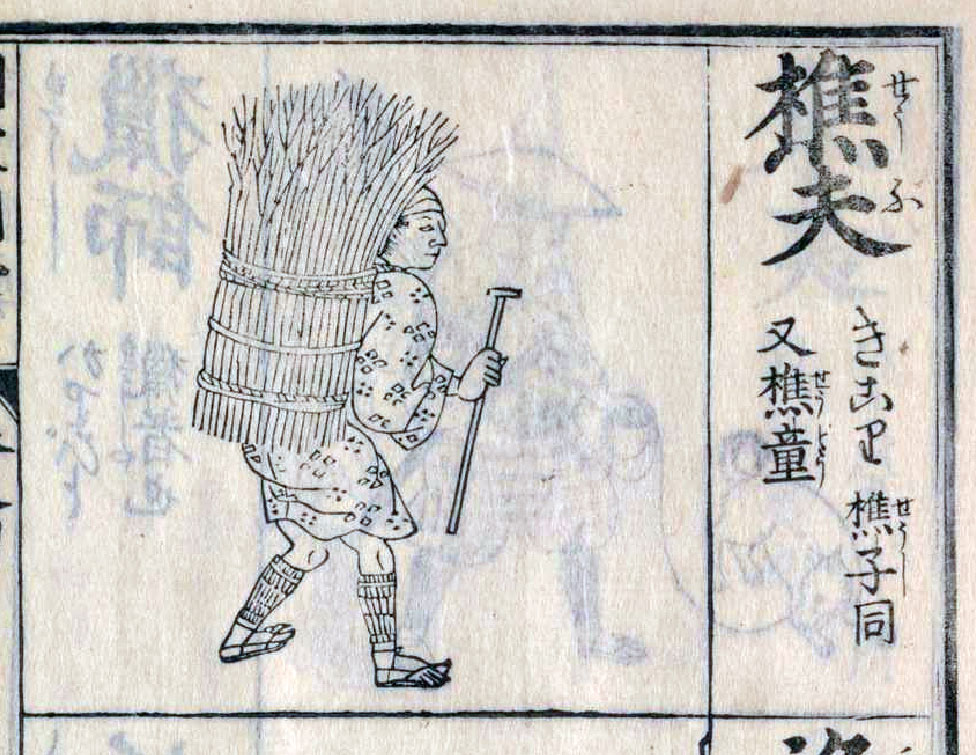 樵夫
せうふ
きこり
樵子同
せうし
又樵童
せうどう